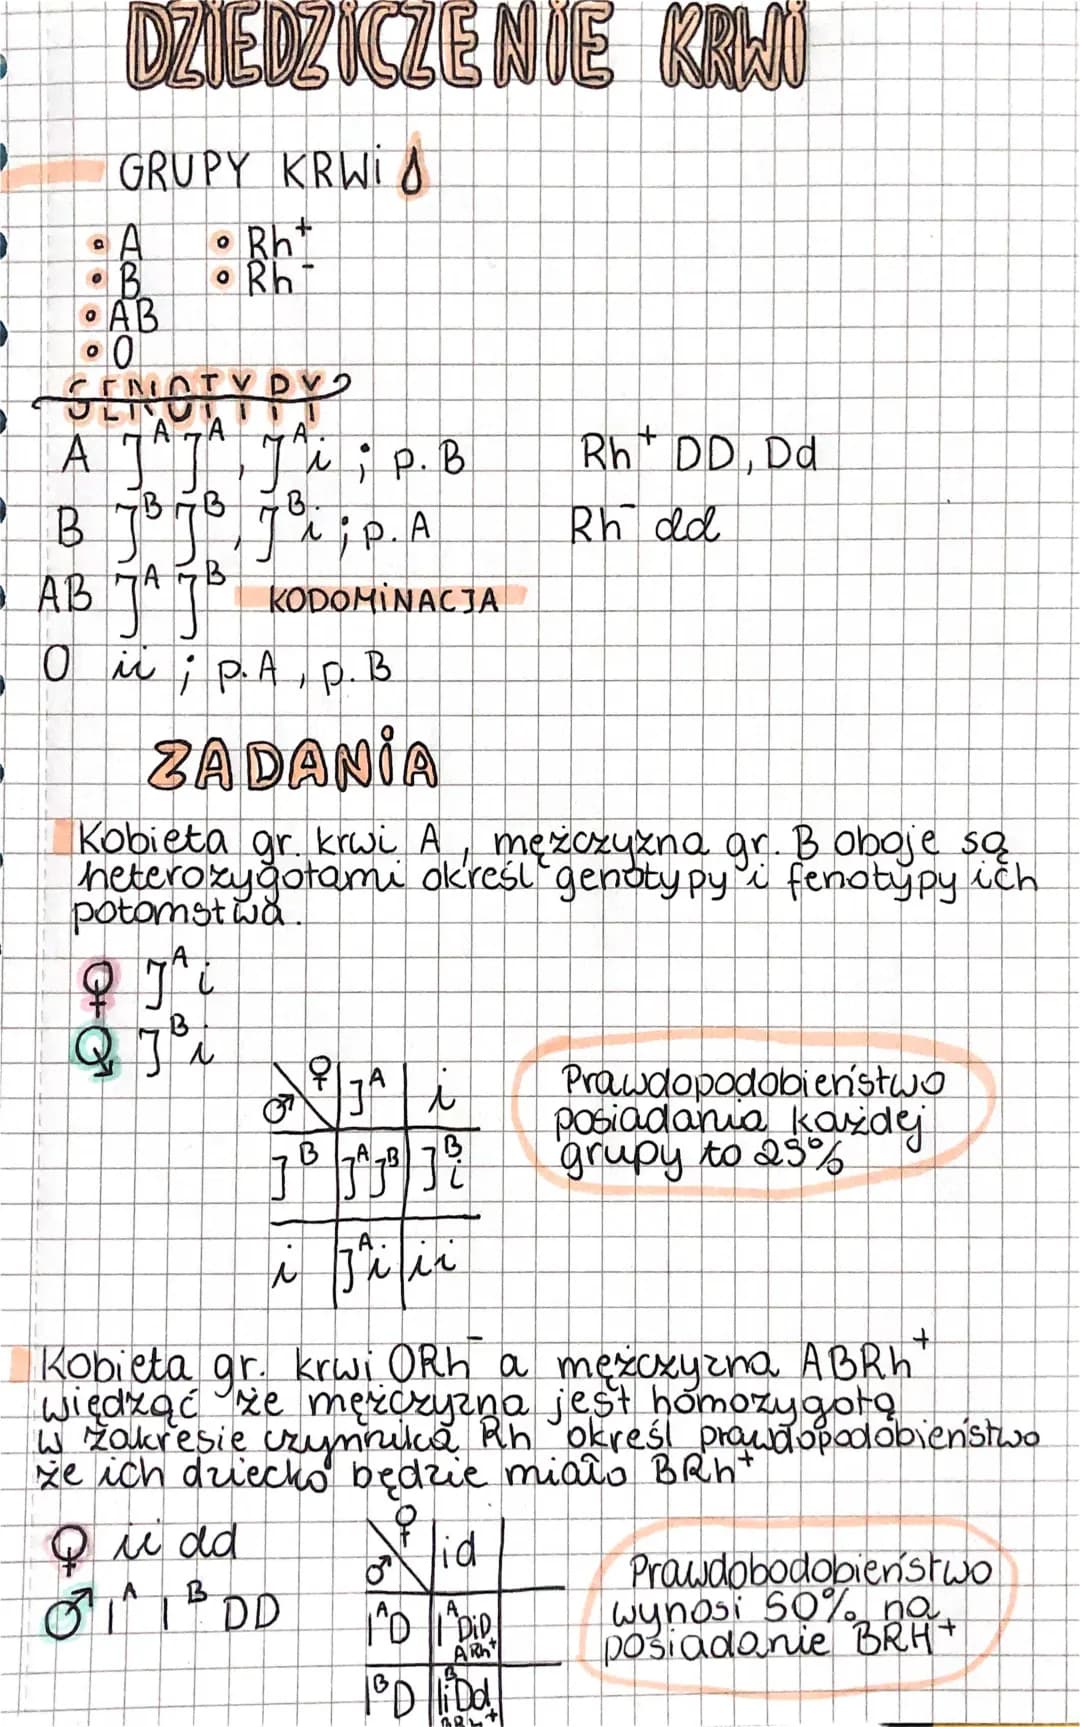 DZIEDZICZENIE KRWI
GRUPY KRWI
• A • Rh⁺
• B • Rh⁻
• AB
• O
GENOTYPY
A Iᴬ Iᴬ, Iᴬi ; p. B Rh⁺ DD, Dd
B Iᴮ Iᴮ, Iᴮi ; p. A Rh⁻ dd
AB Iᴬ Iᴮ KODOMINACJA
O ii ; p. A, p. B
ZADANIA
Kobieta gr. krwi A, mężczyzna gr. B oboje są
heterozygotami określ genotypy i fenotypy ich
potomstwa.
♀ Iᴬi
Iᴮi
♂ ♀ Iᴬ i
Iᴮ IᴬIᴮ Iᴮi
i Iᴬi ii
Prawdopodobieństwo
posiadania każdej
grupy to 25%
Kobieta gr. krwi ORh⁻ a mężczyzna ABRh⁺
wiedząć że mężczyzna jest homozygotą
w zakresie czynnika Rh określ prawdopodobieństwo
że ich dziecko będzie miało BRh⁺
♀ ii dd
♂ Iᴬ Iᴮ DD
♂ ♀ id
IᴬD IᴬDiD
ARh⁺
IᴮD IᴮiDd
BRh⁺
Prawdobodobieństwo
wynosi 50% na
posiadanie BRH+